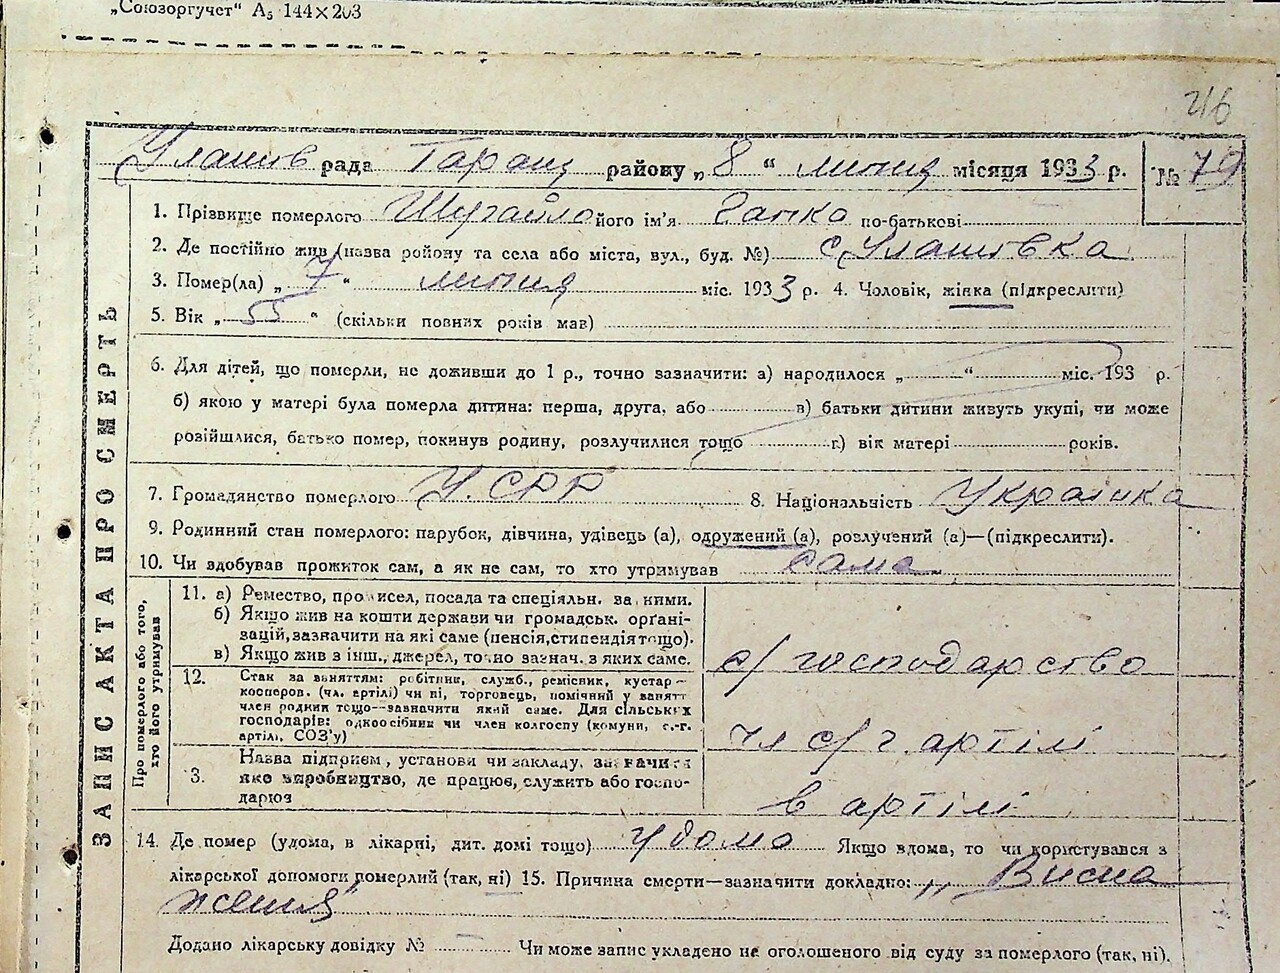 „Союзоргучет“ А₅ 144×203
216
Улашів рада Таращ району „8“ липня місяця 1933 р. № 79
1. Прізвище померлого Шугайло його ім'я Гапка по-батькові
2. Де постійно жив (назва ройону та села або міста, вул., буд. №) с. Улашівка
3. Помер(ла) „7“ липня міс. 1933 р. 4. Чоловік, жінка (підкреслити)
5. Вік „55“ (скільки повних років мав)
6. Для дітей, що померли, не доживши до 1 р., точно зазначити: а) народилося „ “ міс. 193 р.
б) якою у матері була померла дитина: перша, друга, або в) батьки дитини живуть укупі, чи може
розійшлися, батько помер, покинув родину, розлучилися тощо г) вік матері років.
7. Громадянство померлого У.СРР 8. Національність Українка
9. Родинний стан померлого: парубок, дівчина, удівець (а), одружений (а), розлучений (а)—(підкреслити).
10. Чи здобував прожиток сам, а як не сам, то хто утримував сама
ЗАПИС АКТА ПРО СМЕРТЬ
Про померлого або того,
хто його утримував
11. а) Ремество, про исел, посада та спеціяльн. за ними.
б) Якщо жив на кошти держави чи громадськ. орґані-
зацій, зазначити на які саме (пенсія, стипендія тощо).
в) Якщо жив з інш., джерел, точно зазнач. з яких саме.
с/господарство
12. Стан за заняттям: робітник, служб., ремісник, кустар—
косперов. (чл. артілі) чи ні, торговець, помічний у занятт
член родини тощо—зазначити який саме. Для сільських
господарів: одноосібник чи член колгоспу (комуни, с.-г.
артілі, СОЗ'у)
чл с/г. артілі
3. Назва підприєм, установи чи закладу, зазначити
яке виробництво, де працює, служить або госпо-
дарює
в артілі
14. Де помер (удома, в лікарні, дит. домі тощо) удома Якщо вдома, то чи користувався з
лікарської допомоги померлий (так, ні) 15. Причина смерти—зазначити докладно: „Висна
ження“
Додано лікарську довідку № Чи може запис укладено не оголошеного від суду за померлого (так, ні).